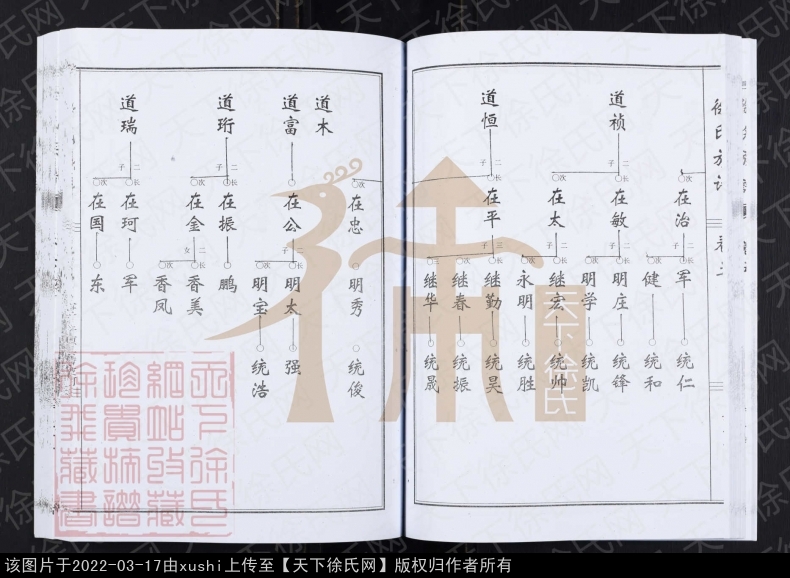 徐氏族谱 卷三
在治
次
军
长
统仁
健
次
统和
道祯
二子
在敏
长
二子
明庄
长
统锋
明学
次
统凯
在太
次
二子
继宏
长
统帅
永明
次
统胜
道恒
二子
在平
长
三子
继勤
长
统昊
继春
次
统振
继华
三
统晟
在忠
次
明秀
统俊
道木
道富
在公
二子
明太
长
强
明宝
次
统浩
道珩
二子
在振
长
鹏
在金
次
二女
香美
长
香凤
次
道瑞
二子
在珂
长
军
在国
次
东
天下徐氏
天下徐氏
网站收藏
珍贵族谱
徐
藏书
天下徐氏网
该图片于2022-03-17由xushi上传至【天下徐氏网】版权归作者所有